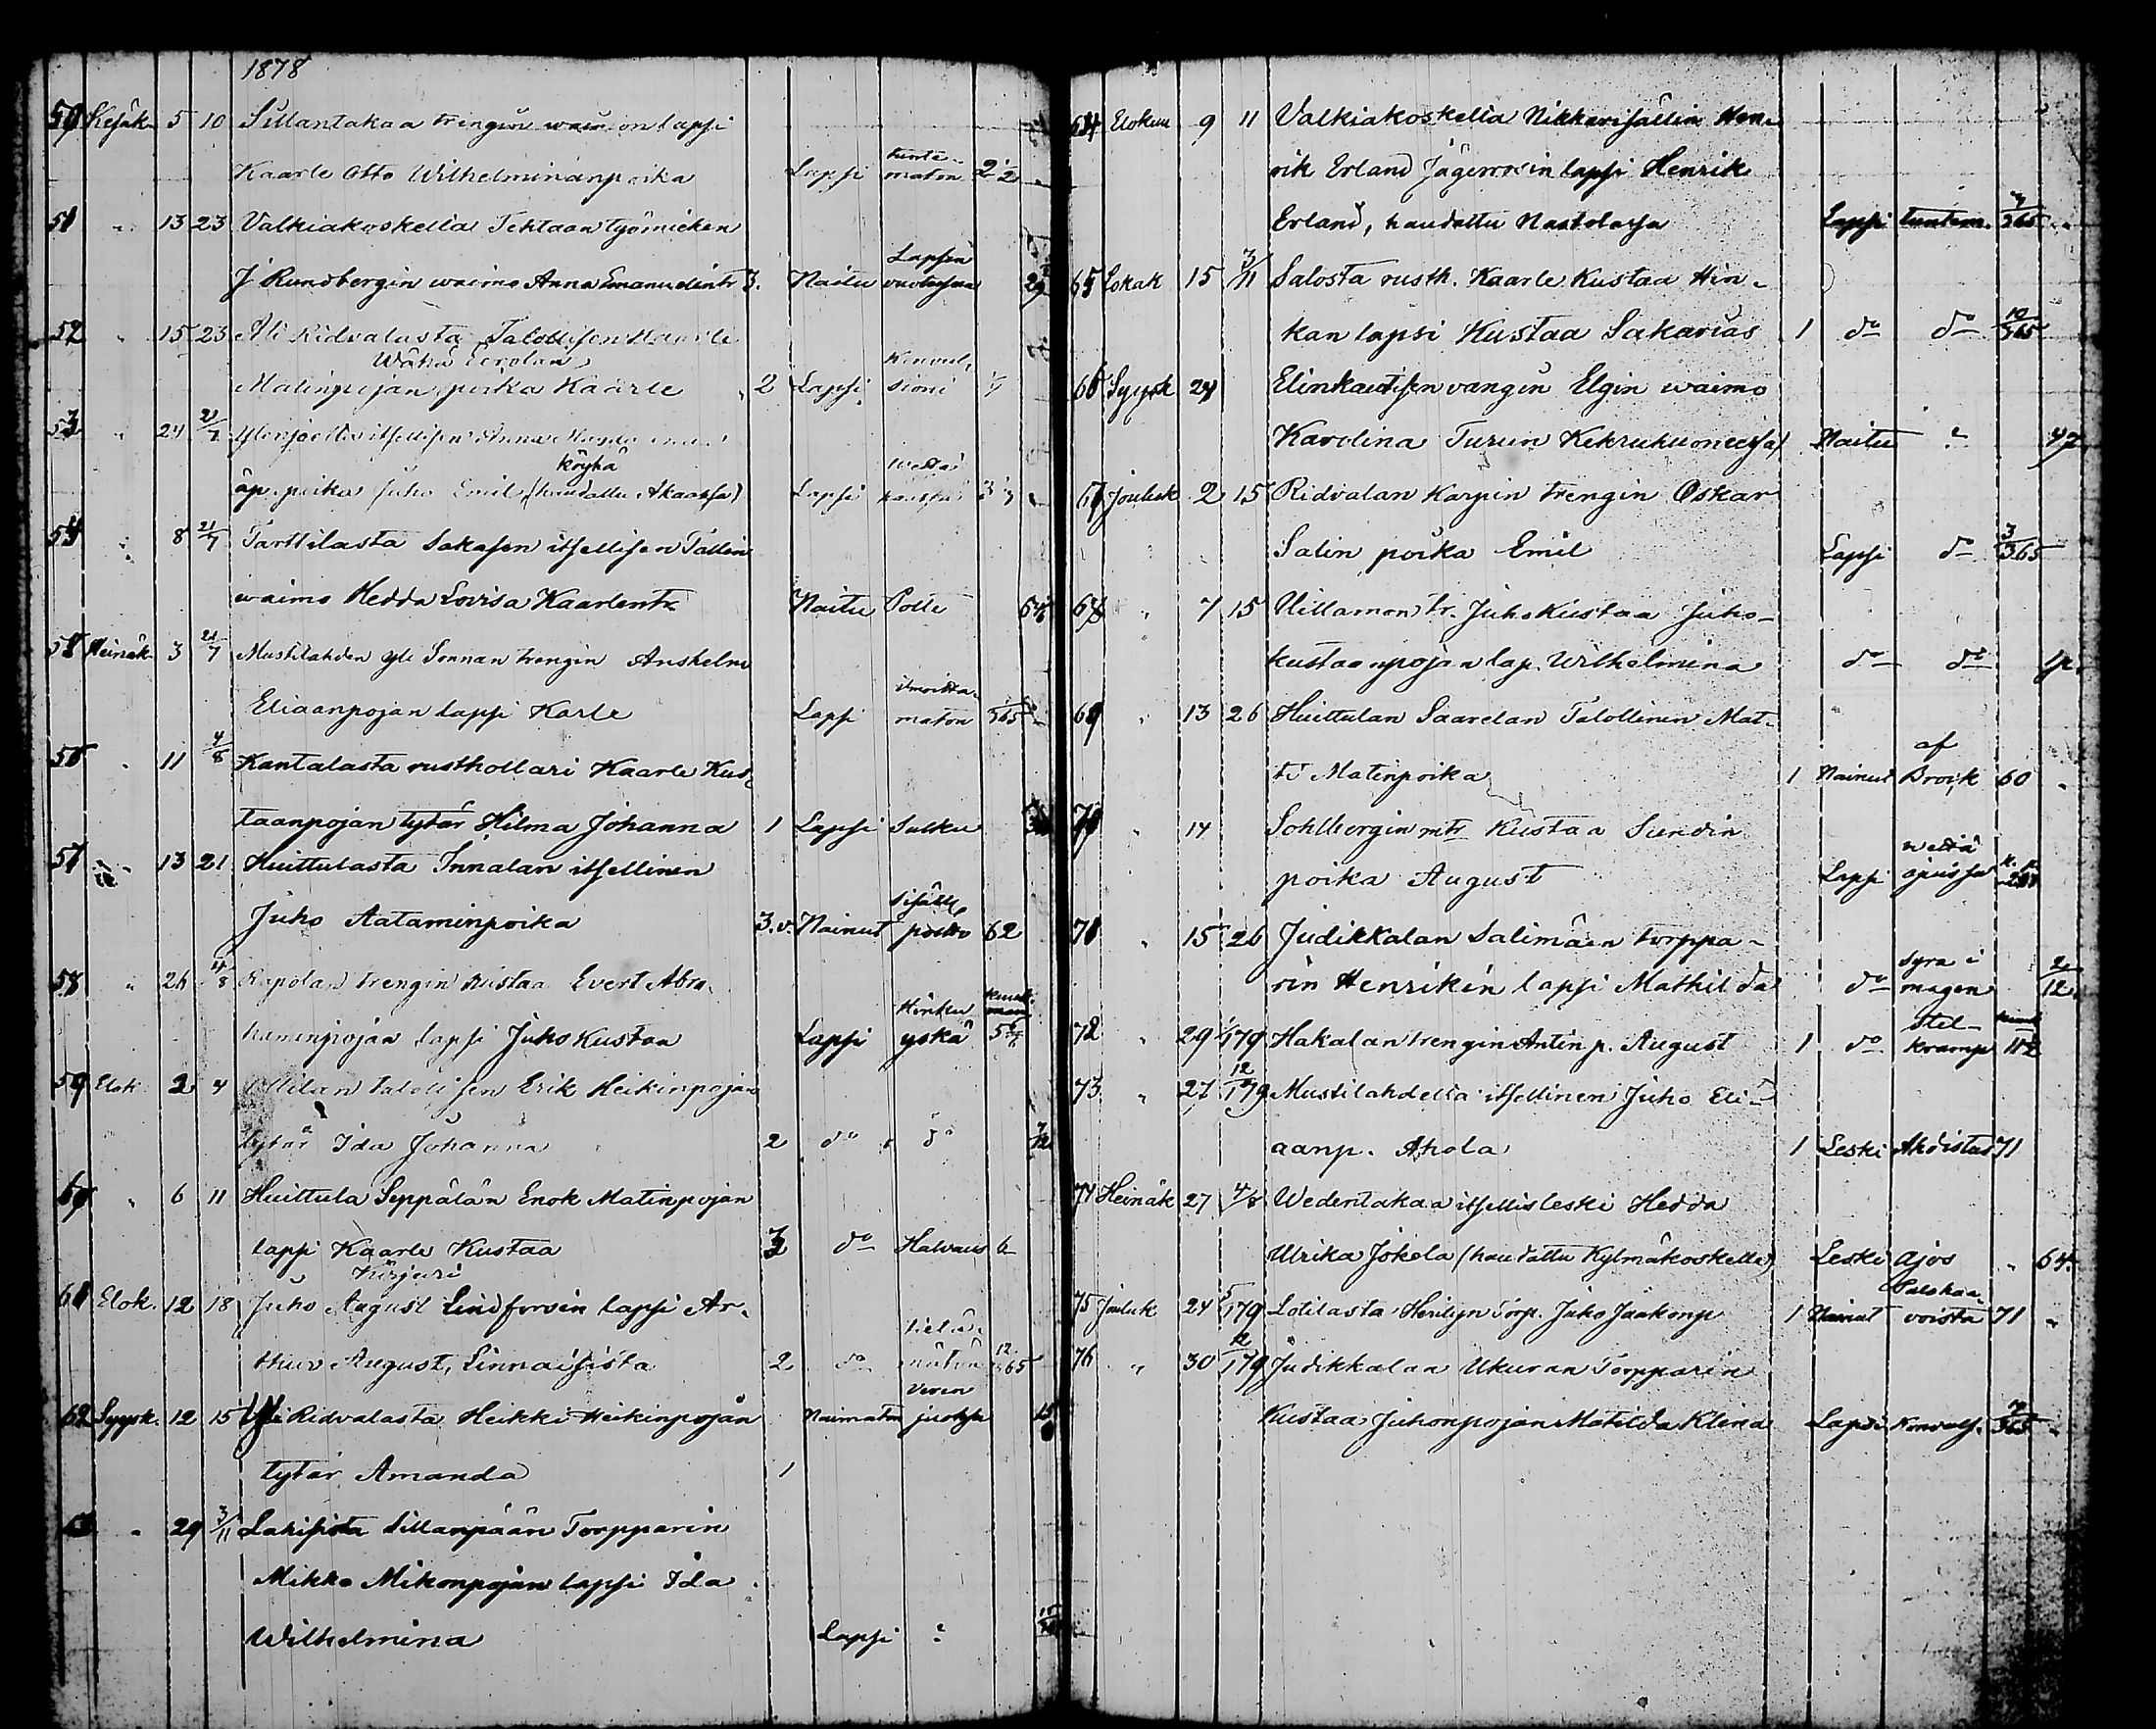 1878
50 Kesäk. 5 10 Sillantakaa trengin waimon lapsi
Kaarle Otto Wilhelminanpoika Lapsi tunte- maton 2 1/2
51 " 13 23 Valkiakoskella Tehtaan työmiehen
J Rundbergin waimo Anna Emanuelintr 3. Naitu Lapsen 29
52 " 15 23 Ali Ridvalasta Talollisen Kaarle
Wähä Eerolan
Matinpojan poika Kaarle 2 Lapsi Konvul- sioni
53 " 24 21/7 itsellisen Anna
äp. poika Juho Emil (köyhä haudattu Akaassa) Lapsi
54 " 8 21/7 Tarttilasta Sakasen itsellisen Tallin
waimo Hedda Lovisa Kaarlentr Naitu Polte
55 Heinäk. 3 21/7 Mustilahden Yli Sonnan trengin Anshelm
Eliaanpojan lapsi Karle Lapsi ilmoitta- maton /365
56 " 11 4/8 Kantalasta rusthollari Kaarle Kus-
taanpojan tytär Hilma Johanna 1 Lapsi
57 " 13 21 Huittulasta Innalan itsellinen
Juho Aataminpoika 3. v. Nainut sisäll. poltto 62
58 " 26 4/8 Rapolan trengin Kustaa Evert Abra-
haminpojan lapsi Juho Kustaa Lapsi Hinku yskä
59 Elok. 2 4 talollisen Erik Heikinpojan
tytär Ida Johanna 2 do do
60 " 6 11 Huittula Seppälän Enok Matinpojan
lapsi Kaarle Kustaa 3 do Halvaus 6
Kirjuri
61 Elok. 12 18 Juho August Lindforsin lapsi Ar-
thur August, Linnaisista 2 do 12/365
62 Syysk. 12 15 Yli Ridvalasta Heikki Heikinpojan Naimaton Veren juoksu 15
tytär Amanda 1
63 " 29 3/11 Sillanpään Torpparin
Mikko Mikonpojan lapsi Ida
Wilhelmina Lapsi ?
64 Elokuu 9 11 Valkiakoskella Nikkarisällin Hen-
rik Erland Jägerrosin lapsi Henrik
Erland, haudattu Nastolassa Lapsi tuntem. /365
65 Lokak 15 3/11 Salosta rusth. Kaarle Kustaa Hin-
kan lapsi Kustaa Sakarias 1 do do 10/365
66 Syysk 24 Elinkautisen vangin Elgin waimo
Karolina Turun Kehruuhuoneessa Naitu ? 47
67 Jouluk 2 15 Ridvalan Karpin trengin Oskar
Salin poika Emil Lapsi do 3/365
68 " 7 15 Uillamon tr. Juho Kustaa Juho-
kustaanpojan lap. Wilhelmina do do 1p.
69 " 13 26 Huittulan Saarelan Talollinen Mat-
ti Matinpoika 1 Nainut af Brock 60
70 " 14 Sohlbergin mtr Kustaa Sundin
poika August Lapsi
71 " 15 26 Judikkalan Salimäen torppa-
rin Henrikin lapsi Mathilda do Syra i magen 2/12
72 " 29 1/179 Hakalan trengin Antinp. August 1 do Stel- kramp
73 " 27 12/179 Mustilahdella itsellinen Juho Eli-
aanp. Ahola 1 Leski Ahdistus 71
74 Heinäk 27 4/8 Wedentakaa itsellisleski Hedda
Ulrika Jokela (haudattu Kylmäkoskella) Leski Ajos " 64
75 Jouluk 24 5/179 Lotilasta Torp. Juho Jaakonp 1 Nainut 71
76 " 30 12/179 Judikkalaa Ukuran Torpparin
Kustaa Juhonpojan Matilda Klina Lapsi Konvuls. /365